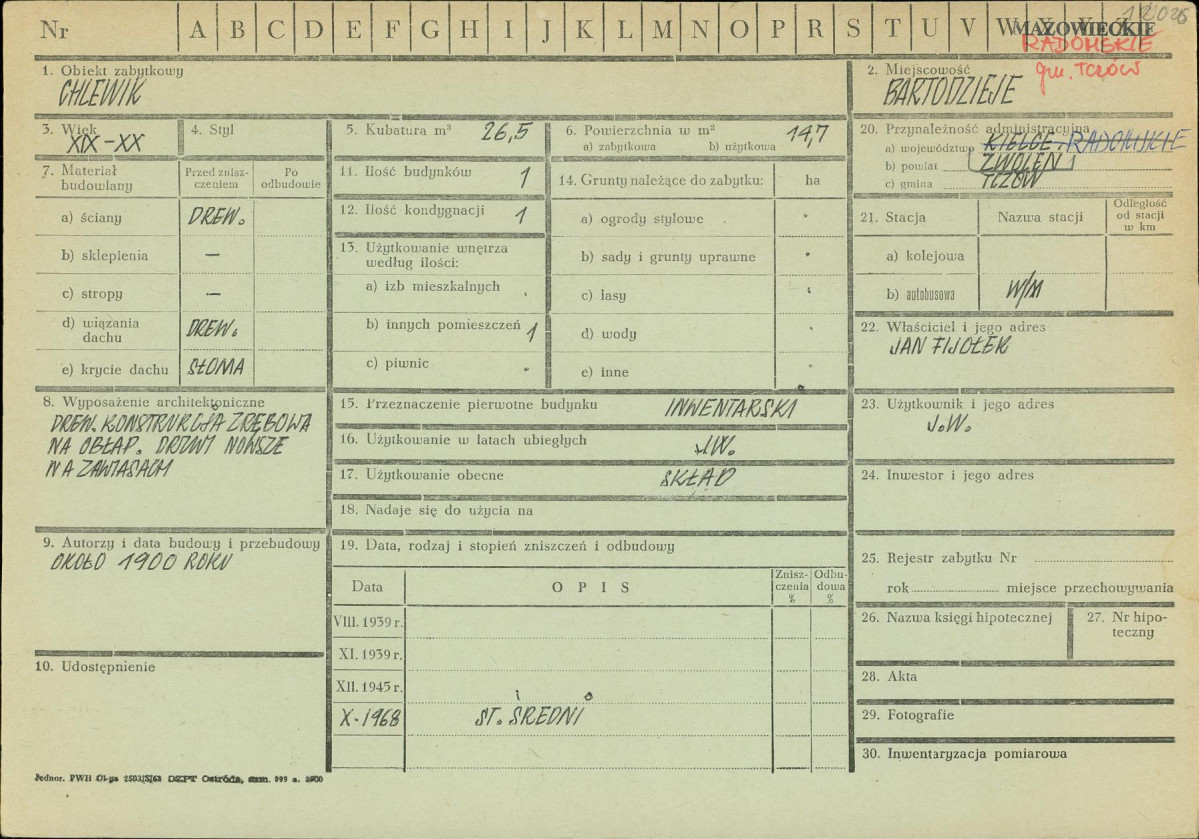 Nr A B C D E F G H I J K L M N O P R S T U V W X Y Z
12026
MAZOWIECKIE
RADOMSKIE
gm. TCZÓW
1. Obiekt zabytkowy
CHLEWIK
2. Miejscowość
BARTODZIEJE
3. Wiek
XIX-XX
4. Styl
5. Kubatura m³ 26,5
6. Powierzchnia w m²
a) zabytkowa b) użytkowa 14,7
20. Przynależność administracyjna
a) województwo KIELCE, RADOMSKIE
b) powiat ZWOLEŃ
c) gmina TCZÓW
7. Materiał budowlany
Przed zniszczeniem
Po odbudowie
a) ściany DREW.
b) sklepienia —
c) stropy —
d) wiązania dachu DREW.
e) krycie dachu SŁOMA
11. Ilość budynków 1
12. Ilość kondygnacji 1
13. Użytkowanie wnętrza
według ilości:
a) izb mieszkalnych
b) innych pomieszczeń 1
c) piwnic
14. Grunty należące do zabytku: ha
a) ogrody stylowe
b) sady i grunty uprawne
c) lasy
d) wody
e) inne
21. Stacja Nazwa stacji Odległość od stacji w km
a) kolejowa
b) autobusowa W/M
22. Właściciel i jego adres
JAN FIJOŁEK
8. Wyposażenie architektoniczne
DREW. KONSTRUKCJA ZRĘBOWA
NA OBŁAP. DRZWI NOWSZE
NA ZAWIASACH
15. Przeznaczenie pierwotne budynku INWENTARSKI
16. Użytkowanie w latach ubiegłych J.W.
17. Użytkowanie obecne SKŁAD
18. Nadaje się do użycia na
23. Użytkownik i jego adres
J.W.
24. Inwestor i jego adres
9. Autorzy i data budowy i przebudowy
OKOŁO 1900 ROKU
10. Udostępnienie
19. Data, rodzaj i stopień zniszczeń i odbudowy
Data OPIS Zniszczenia % Odbudowa %
VIII. 1939 r.
XI. 1939 r.
XII. 1945 r.
X-1968 ST. ŚREDNI
25. Rejestr zabytku Nr
rok miejsce przechowywania
26. Nazwa księgi hipotecznej
27. Nr hipoteczny
28. Akta
29. Fotografie
30. Inwentaryzacja pomiarowa
Jednor. PWH Ol-ga 2503/S/63 DZPT Ostróda, zam. 999 n.